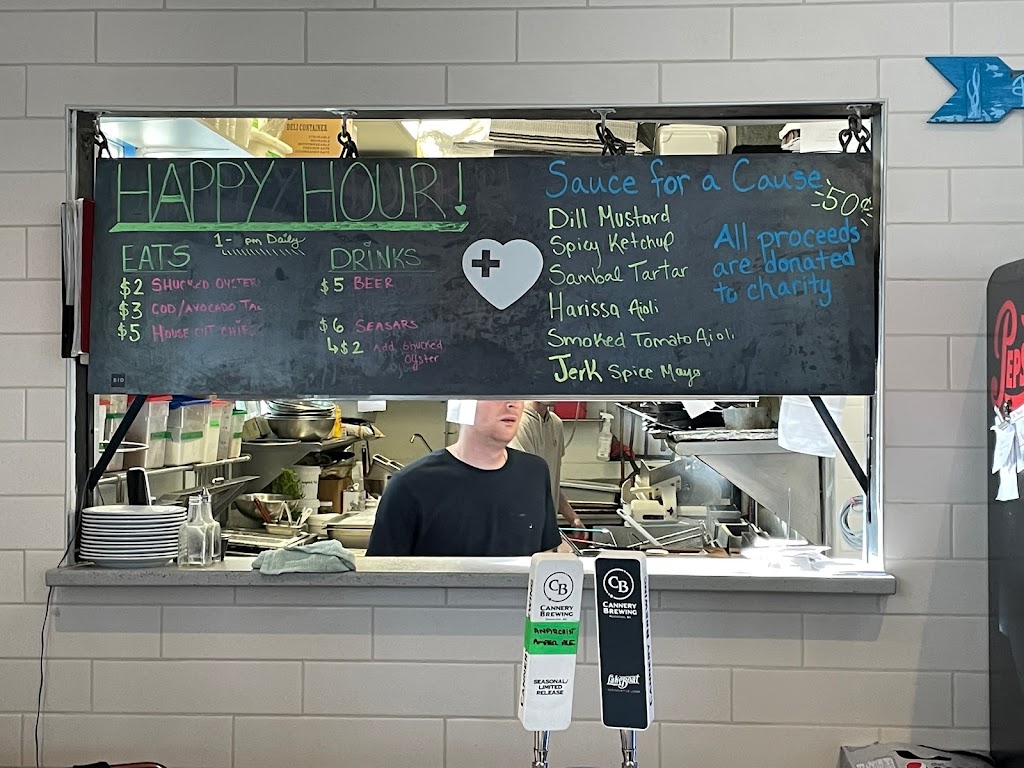 DELI CONTAINER
HAPPY HOUR!
1- pm Daily
EATS
$2 SHUCKED OYSTER
$3 COD/AVOCADO TAC
$5 HOUSE CUT CHIPS
DRINKS
$5 BEER
$6 SEASARS
$2 Add Shucked
Oyster
Sauce for a Cause
-50¢
Dill Mustard
Spicy Ketchup
Sambal Tartar
Harissa Aioli
Smoked Tomato Aioli
Jerk Spice Mayo
All proceeds
are donated
to charity
BID
PEPS
CB
CANNERY
BREWING
ANARCHIST
AMBER ALE
SEASONAL/
LIMITED
RELEASE
CB
CANNERY
BREWING
Lakeboat